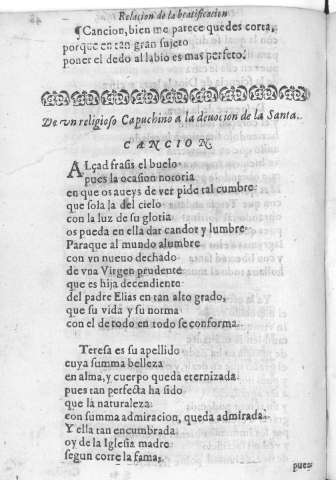 Relacion de la beatificacion
¶Cancion, bien me parece quedes corta,
porque en tan gran sujeto
poner el dedo al labio es mas perfeto.
De vn religioso Capuchino a la deuocion de la Santa.
CANCION
ALçad frasis el buelo
pues la ocasion notoria
en que os aueys de ver pide tal cumbre
que sola la del cielo
con la luz de su gloria
os pueda en ella dar candor y lumbre
Paraque al mundo alumbre
con vn nueuo dechado
de vna Virgen prudente
que es hija decendiente
del padre Elias en tan alto grado,
que su vida y su norma
con el de todo en todo se conforma.
Teresa es su apellido
cuya summa belleza
en alma, y cuerpo queda eternizada
pues tan perfecta ha sido
que la naturaleza
con summa admiracion, queda admirada
Y ella tan encumbrada
oy de la Iglesia madre
segun corre la fama,
pues